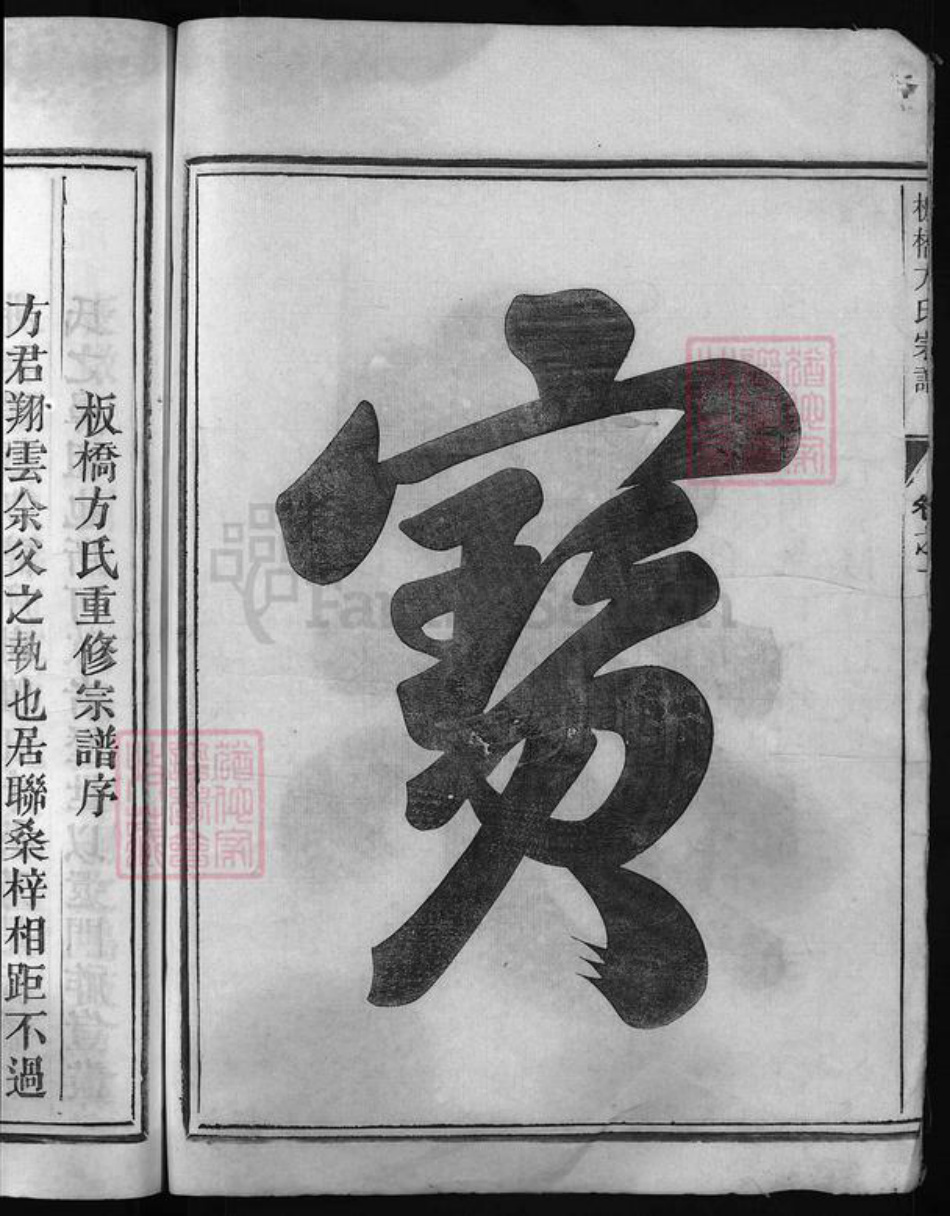 板橋方氏宗譜
卷之
寶
板橋方氏重修宗譜序
方君翔雲余父之執也居聯桑梓相距不過
FamilySearch